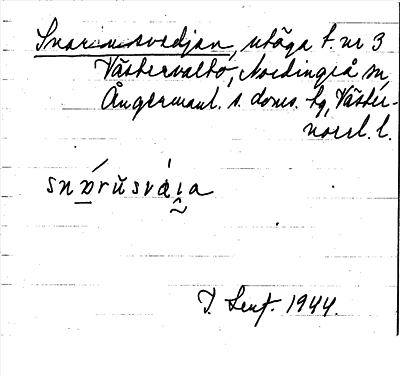 Snarinsvedjan, utäga t. nr 3
Västervalto, Nordingrå sn,
Ångermanl. s. doms. tg, Väster-
norrl. l.
snɒ́rŭsvȧɪa
1944.